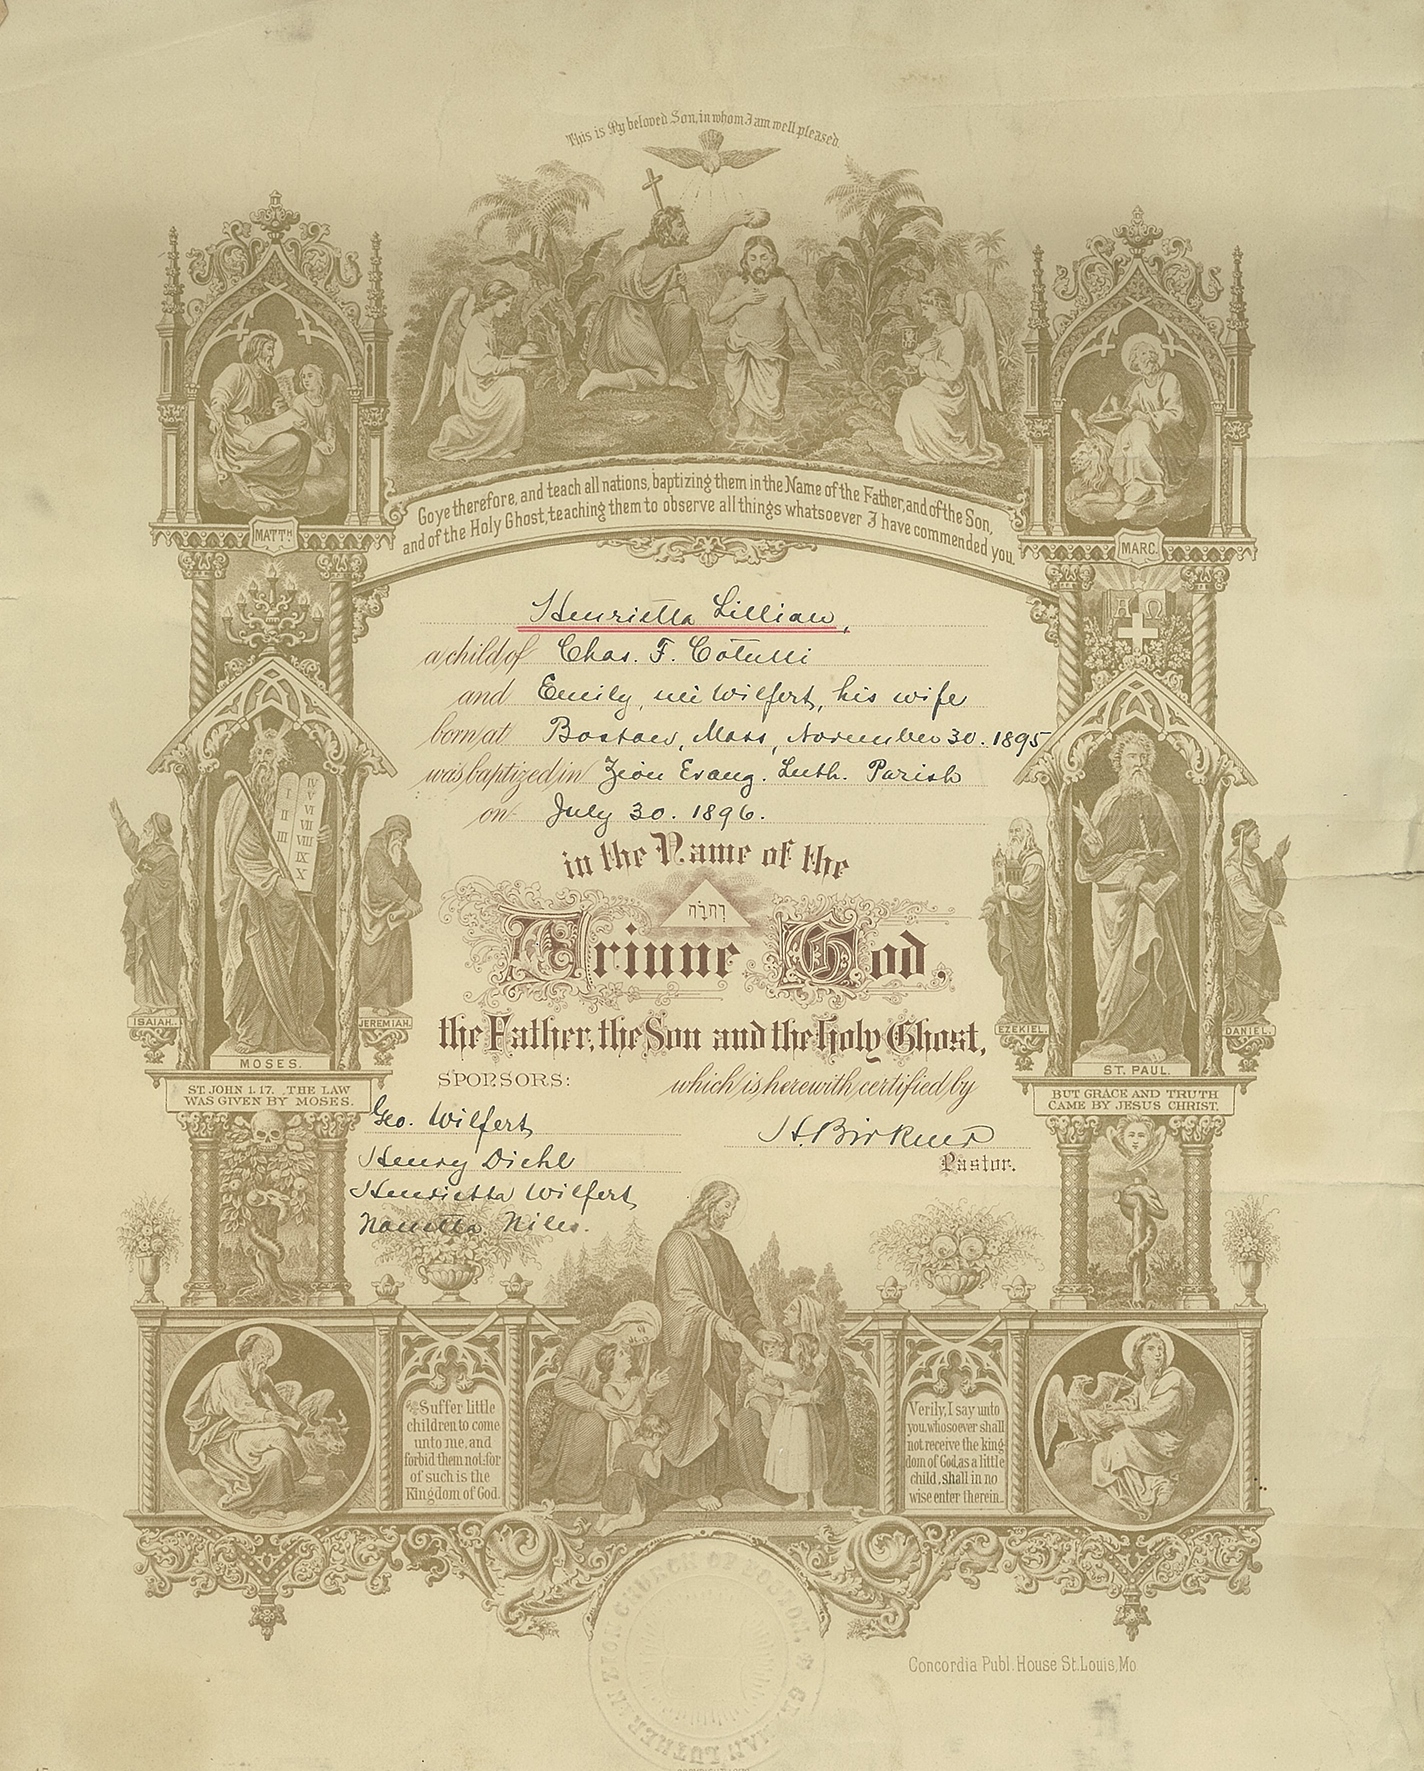 This is My beloved Son, in whom I am well pleased.
Go ye therefore, and teach all nations, baptizing them in the Name of the Father, and of the Son,
and of the Holy Ghost, teaching them to observe all things whatsoever I have commended you.
MATTH.
MARC.
Α Ω
Henrietta Lillian,
a child of Chas. F. Cotulli
and Emily, née Wilfert, his wife
born at Boston, Mass, November 30. 1895
was baptized in Zion Evang. Luth. Parish
on July 30. 1896.
in the Name of the
Triune God,
the Father, the Son and the Holy Ghost,
I II III IV V VI VII VIII IX X
ISAIAH.
JEREMIAH.
EZEKIEL.
DANIEL.
MOSES.
ST. PAUL.
ST. JOHN 1. 17. THE LAW
WAS GIVEN BY MOSES.
BUT GRACE AND TRUTH
CAME BY JESUS CHRIST.
SPONSORS:
which is herewith certified by
Geo. Wilfert
Henry Diehl
Henrietta Wilfert
Nanetta Niles.
H. Birkner
Pastor.
Suffer little
children to come
unto me, and
forbid them not: for
of such is the
Kingdom of God.
Verily, I say unto
you, whosoever shall
not receive the king
dom of God, as a little
child, shall in no
wise enter therein.
ZION CHURCH OF BOSTON
Concordia Publ. House St. Louis, Mo